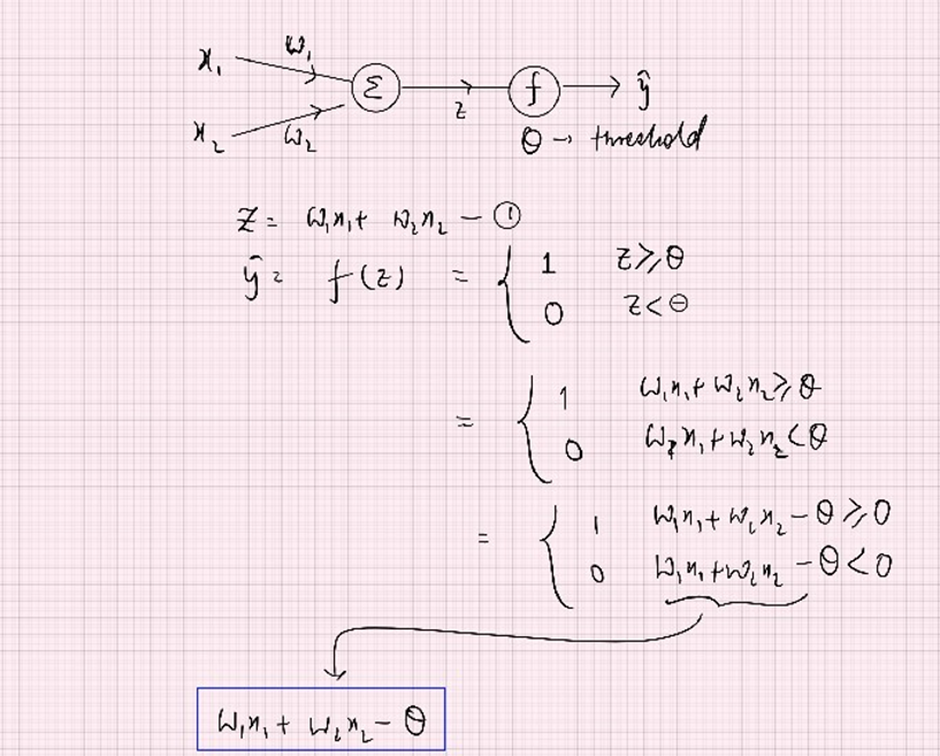 x₁ w₁ Σ z f ŷ
x₂ w₂ θ → threshold
z = w₁x₁ + w₂x₂ — ①
ŷ = f(z) = { 1 z ≥ θ
0 z < θ
= { 1 w₁x₁ + w₂x₂ ≥ θ
0 w₂x₁ + w₂x₂ < θ
= { 1 w₁x₁ + w₂x₂ - θ ≥ 0
0 w₁x₁ + w₂x₂ - θ < 0
w₁x₁ + w₂x₂ - θ